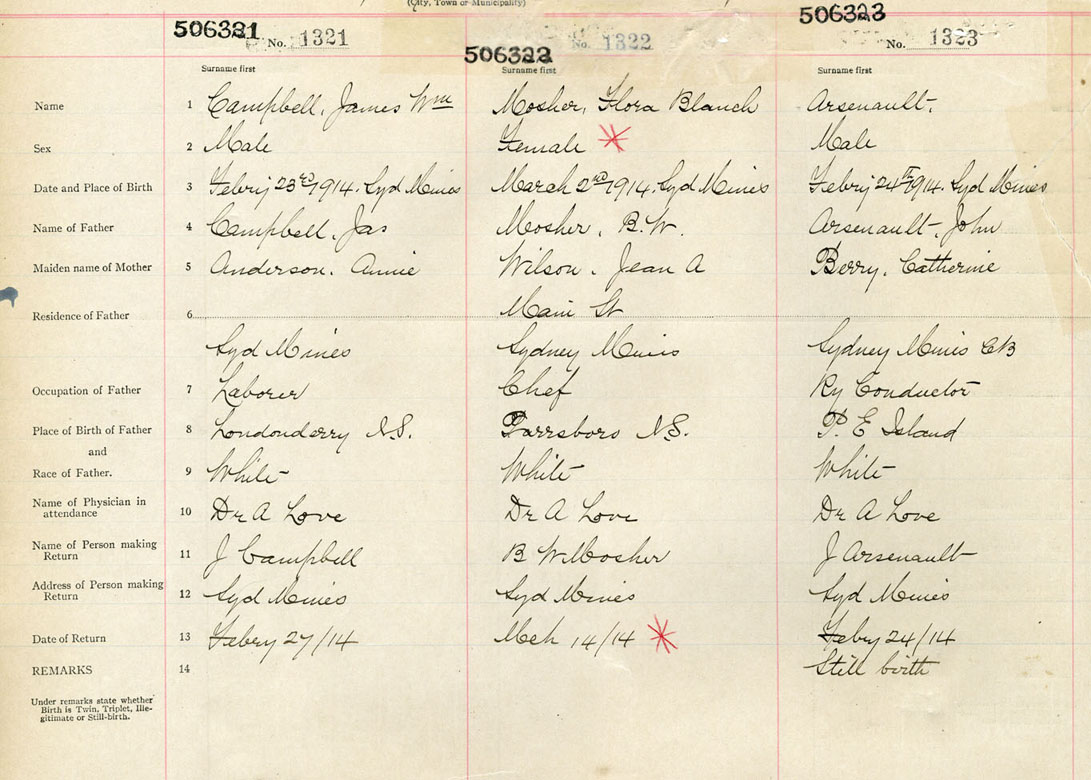 (City, Town or Municipality)
506321 No. 1321
506322 No. 1322
506323 No. 1323
Surname first Surname first Surname first
Name 1 Campbell, James Wm Mosher, Flora Blanch Arsenault,
Sex 2 Male Female Male
Date and Place of Birth 3 Febry 23rd 1914. Syd Mines March 2nd 1914. Syd Mines Febry 24th 1914. Syd Mines
Name of Father 4 Campbell, Jas Mosher, B. W. Arsenault, John
Maiden name of Mother 5 Anderson, Annie Wilson, Jean A Berry, Catherine
Residence of Father 6 Main St
Syd Mines Sydney Mines Sydney Mines CB
Occupation of Father 7 Laborer Chef Ry Conductor
Place of Birth of Father 8 Londonderry N.S. Parrsboro N.S. P. E Island
and
Race of Father. 9 White White White
Name of Physician in
attendance 10 Dr A Love Dr A Love Dr A Love
Name of Person making
Return 11 J Campbell B W Mosher J Arsenault
Address of Person making
Return 12 Syd Mines Syd Mines Syd Mines
Date of Return 13 Febry 27/14 Mch 14/14 Febry 24/14
REMARKS 14 Still birth
Under remarks state whether
Birth is Twin, Triplet, Ille-
gitimate or Still-birth.